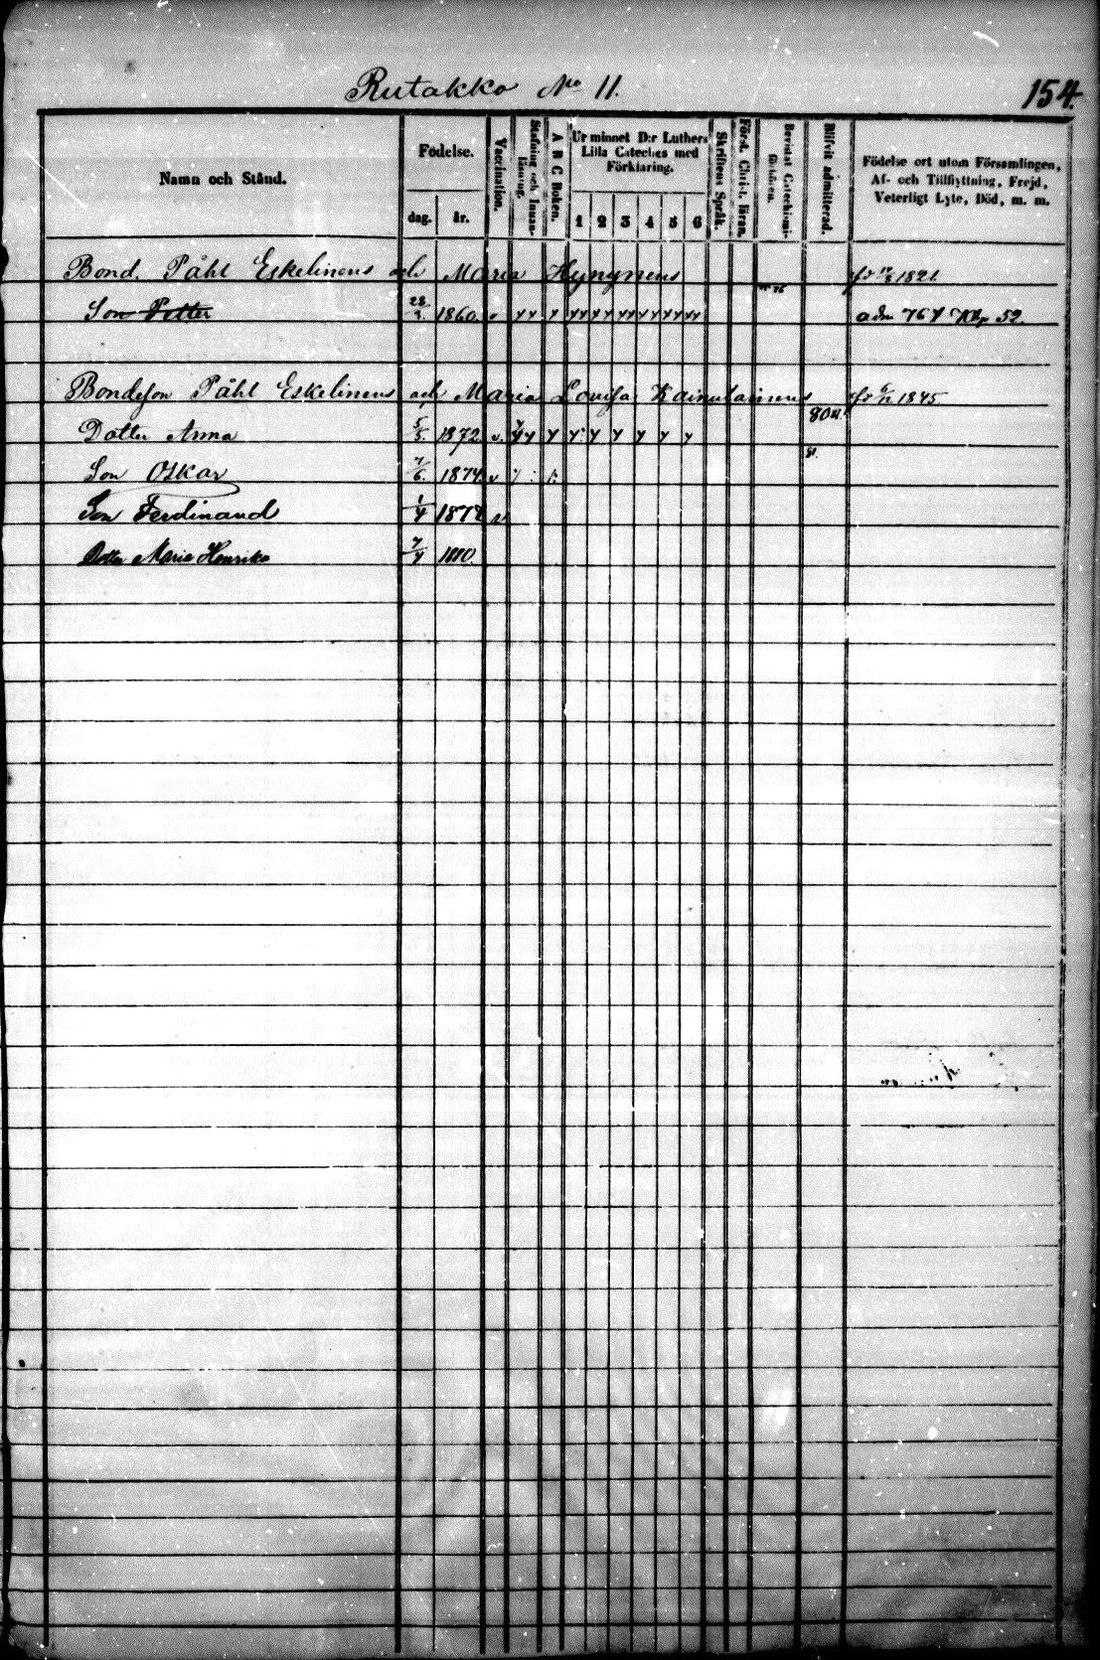 Rutakko No 11.
154.
Namn och Stånd.
Födelse.
dag. år.
Vaccination.
Stafning och Innanläsning.
A B C Boken.
Ur minnet D:r Luthers Lilla Cateches med Förklaring.
1 2 3 4 5 6
Skriftens Språk.
Först. Christ. läran.
Bevistat Catechismi-förhören.
Blifvit admitterad.
Födelse ort utom Församlingen, Af- och Tillflyttning, Frejd, Veterligt Lyte, Död, m. m.
Bond. Påhl Eskelinens och Maria Hynynens 1821
Son Petter 1860. 52.
Bondeson Påhl Eskelinens och Maria Lovisa Kainulainens 1845
Dotter Anna 5/5. 1872 v.
Son Oskar 7/6. 1874 v
Son Ferdinand 1/4 1878
Dotter Maria Henrika 7/4 1880.